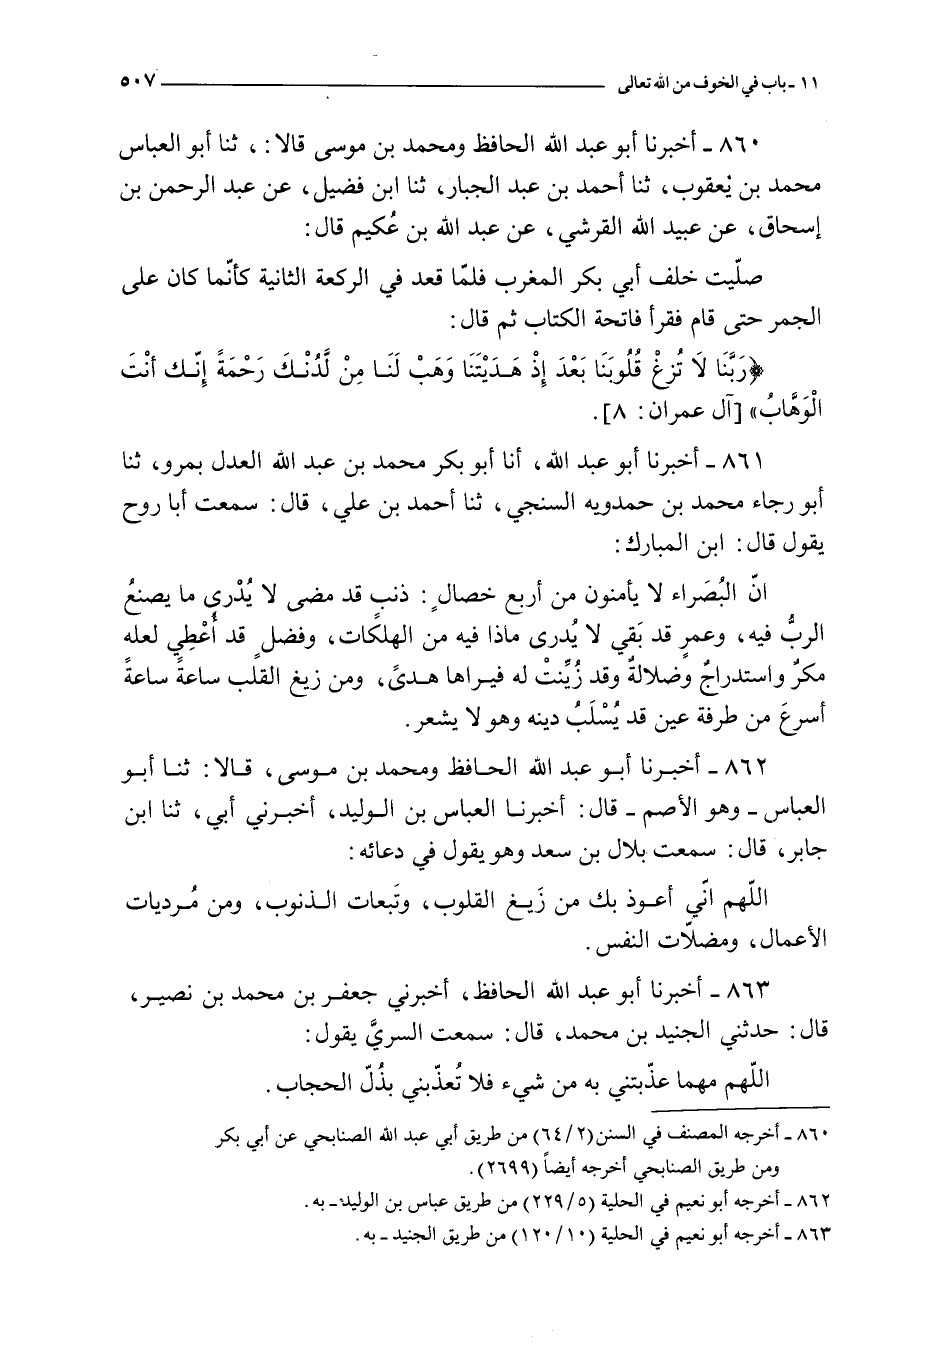 ١١ - باب في الخوف من الله تعالى ٥٠٧
٨٦٠ - أخبرنا أبو عبد الله الحافظ ومحمد بن موسى قالا: ، ثنا أبو العباس
محمد بن يْعقوب، ثنا أحمد بن عبد الجبار، ثنا ابن فضيل، عن عبد الرحمن بن
إسحاق، عن عبيد الله القرشي، عن عبد الله بن عُكيم قال:
صلّيت خلف أبي بكر المغرب فلمّا قعد في الركعة الثانية كأنّما كان على
الجمر حتى قام فقرأ فاتحة الكتاب ثم قال:
﴿رَبَّنَا لَا تُزِغْ قُلُوبَنَا بَعْدَ إِذْ هَدَيْتَنَا وَهَبْ لَنَا مِنْ لَّدُنْكَ رَحْمَةً إِنّك أنْتَ
الْوَهَّابُ» [آل عمران: ٨].
٨٦١ - أخبرنا أبو عبد الله، أنا أبو بكر محمد بن عبد الله العدل بمرو، ثنا
أبو رجاء محمد بن حمدويه السنجي، ثنا أحمد بن علي، قال: سمعت أبا روح
يقول قال: ابن المبارك:
انّ البُصَراء لا يأمنون من أربع خصالٍ: ذنبٍ قد مضى لا يُدْرى ما يصنعُ
الربُّ فيه، وعمرٍ قد بَقي لا يُدرى ماذا فيه من الهلكات، وفضلٍ قد أُعْطِي لعله
مكرٌ واستدراجٌ وضلالةٌ وقد زُيِّنتْ له فيراها هدىً، ومن زيغ القلب ساعةً ساعةً
أسرعَ من طرفة عين قد يُسْلَبُ دينه وهو لا يشعر.
٨٦٢ - أخبرنا أبو عبد الله الحافظ ومحمد بن موسى، قالا: ثنا أبو
العباس - وهو الأصم - قال: أخبرنا العباس بن الوليد، أخبرني أبي، ثنا ابن
جابر، قال: سمعت بلال بن سعد وهو يقول في دعائه:
اللّهم انّي أعوذ بك من زَيغ القلوب، وتَبعات الذنوب، ومن مُرديات
الأعمال، ومضلّات النفس.
٨٦٣ - أخبرنا أبو عبد الله الحافظ، أخبرني جعفر بن محمد بن نصير،
قال: حدثني الجنيد بن محمد، قال: سمعت السريَّ يقول:
اللّهم مهما عذّبتني به من شيء فلا تُعذّبني بذُلّ الحجاب.
٨٦٠ - أخرجه المصنف في السنن (٢/ ٦٤) من طريق أبي عبد الله الصنابحي عن أبي بكر
ومن طريق الصنابحي أخرجه أيضاً (٢٦٩٩).
٨٦٢ - أخرجه أبو نعيم في الحلية (٥/ ٢٢٩) من طريق عباس بن الوليد - به.
٨٦٣ - أخرجه أبو نعيم في الحلية (١٠/ ١٢٠) من طريق الجنيد - به.